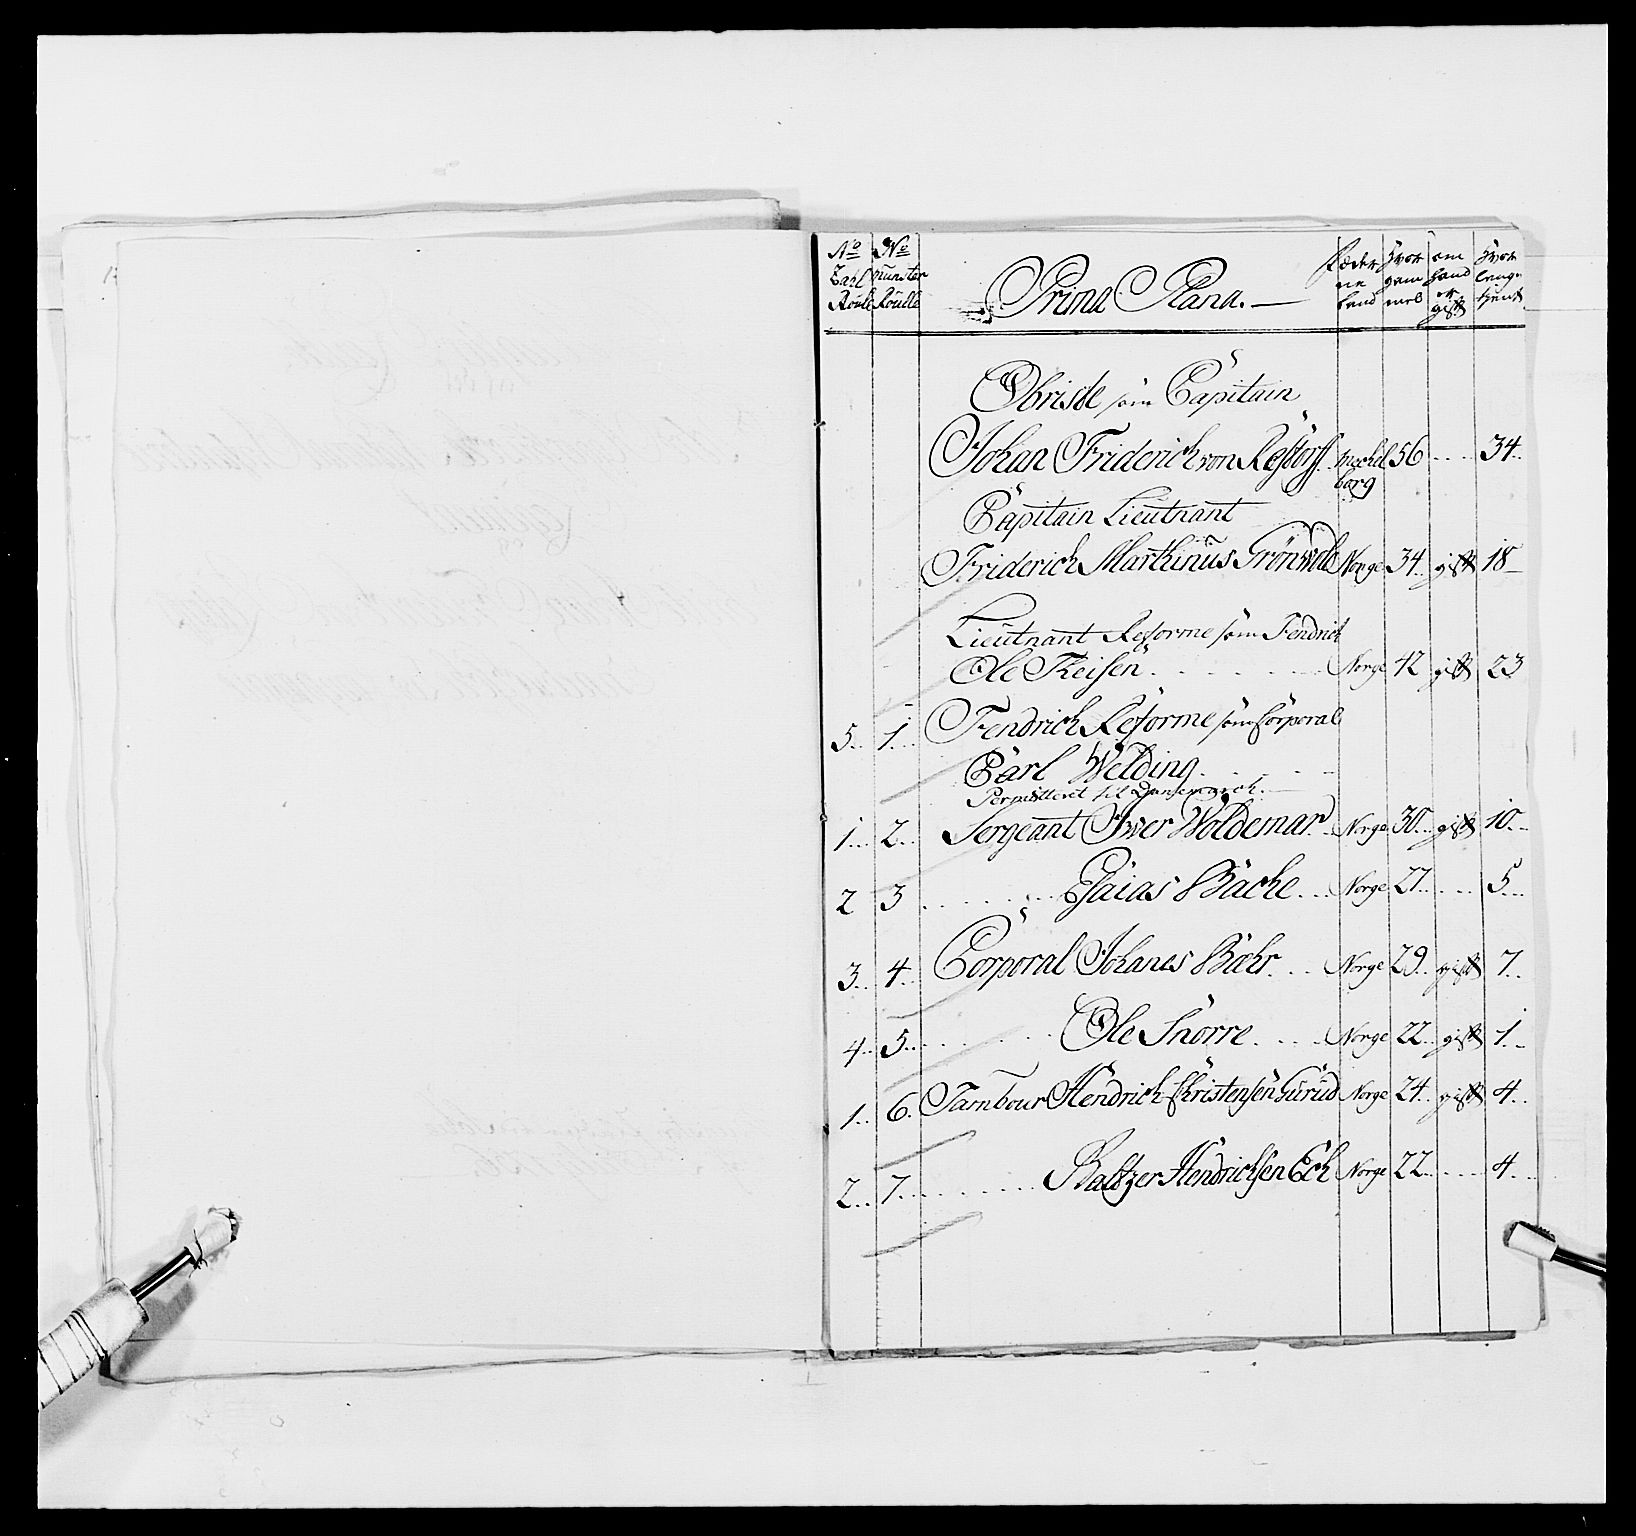 No No Prima Plana. Fæder ne land Hvor gam mel om hand er gift Hvor lenge tjent
Zahl Roulle Munster Roulle
Obriste som Capitain
Johan Friderich von Restorff Meckel borg 56 34
Capitain Lieutnant
Friderich Marthinus Grönwold Norge 34 gift 18
Lieutnant Reforme som Fendrich
Ole Theisen Norge 42 gift 23
5 1 Fendrich Reforme som Corporal
Carl Welding
Permitteret til Dannemarck.
1 2 Sergeant Iwer Woldemar Norge 30 gift 10
2 3 Esaias Backe Norge 27 5
3 4 Corporal Johanes Bæhr Norge 29 gift 7
4 5 Ole Snorre Norge 22 gift 1
1 6 Tambour Hendrich Christensen Gurud Norge 24 gift 4
2 7 Baltzer Hendrichsen Eeh Norge 22 4